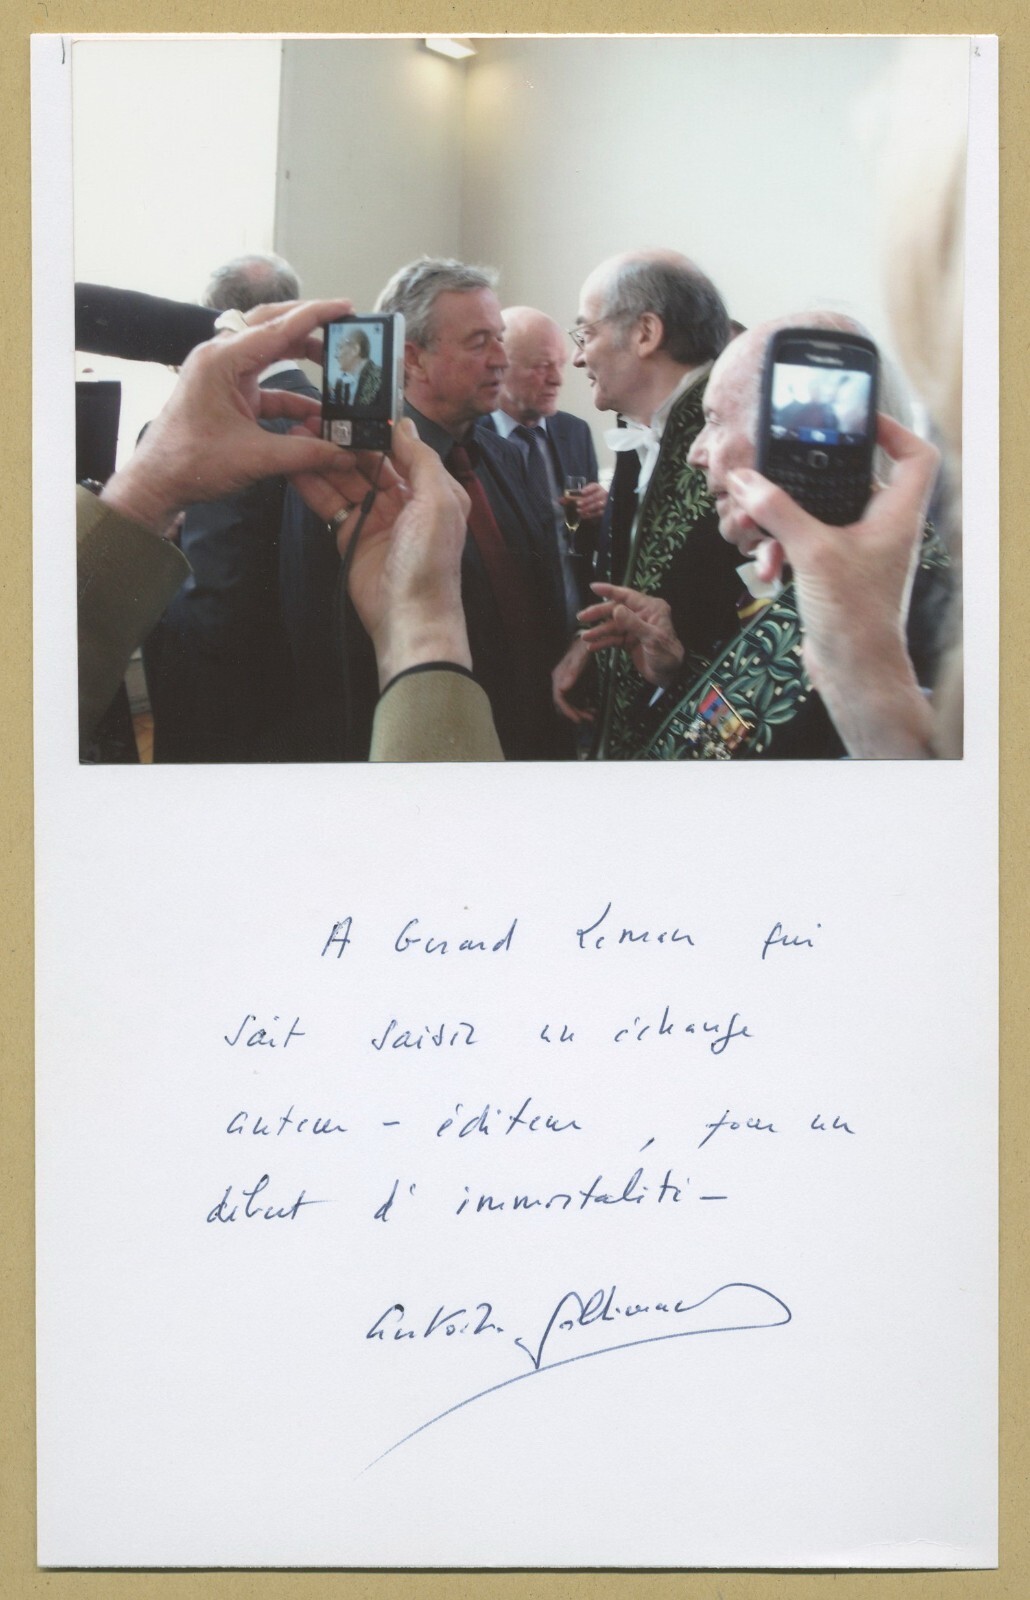 A Gérard Leman qui
sait saisir un échange
auteur - éditeur, pour un
début d'immortalité -
Antoine Gallimard